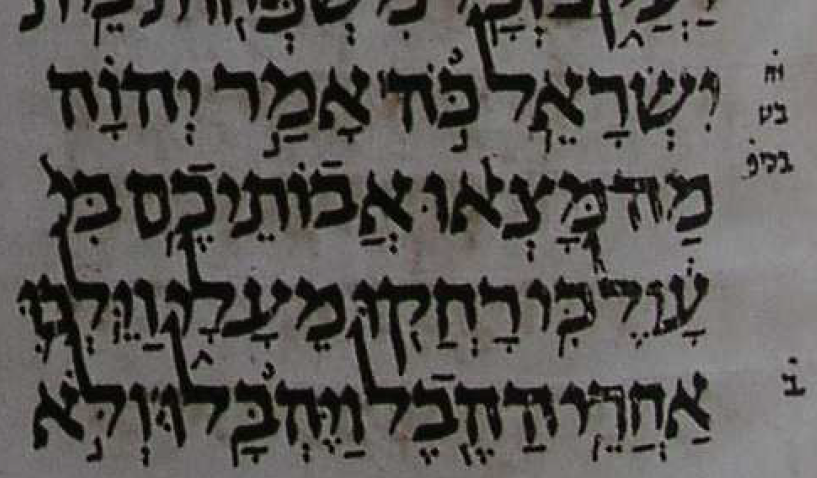 יַעֲקֹב וְכָל מִשְׁפְּחוֹת בֵּית
יִשְׂרָאֵל כֹּה אָמַר יְהוָה
מַה מָּצְאוּ אֲבוֹתֵיכֶם בִּי
עָוֶל כִּי רָחֲקוּ מֵעָלָי וַיֵּלְכוּ
אַחֲרֵי הַהֶבֶל וַיֶּהְבָּלוּ וְלֹא
ב